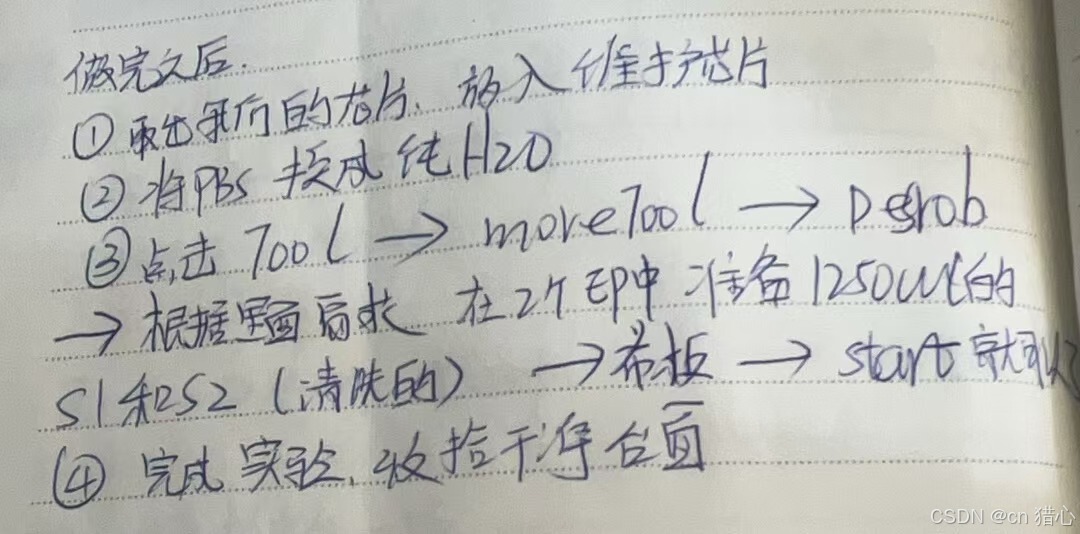 做完之后.
①取出我们的芯片、放入维护芯片
②将PBS 换成 纯H2O
③点击 Tool → moreTool → Desrob
→根据里面需求 在2个EP中 准备1250uL的
S1和S2 (清洗的) → 布板 → start 就可以
④ 完成实验,收拾干净台面
CSDN @cn 猎心